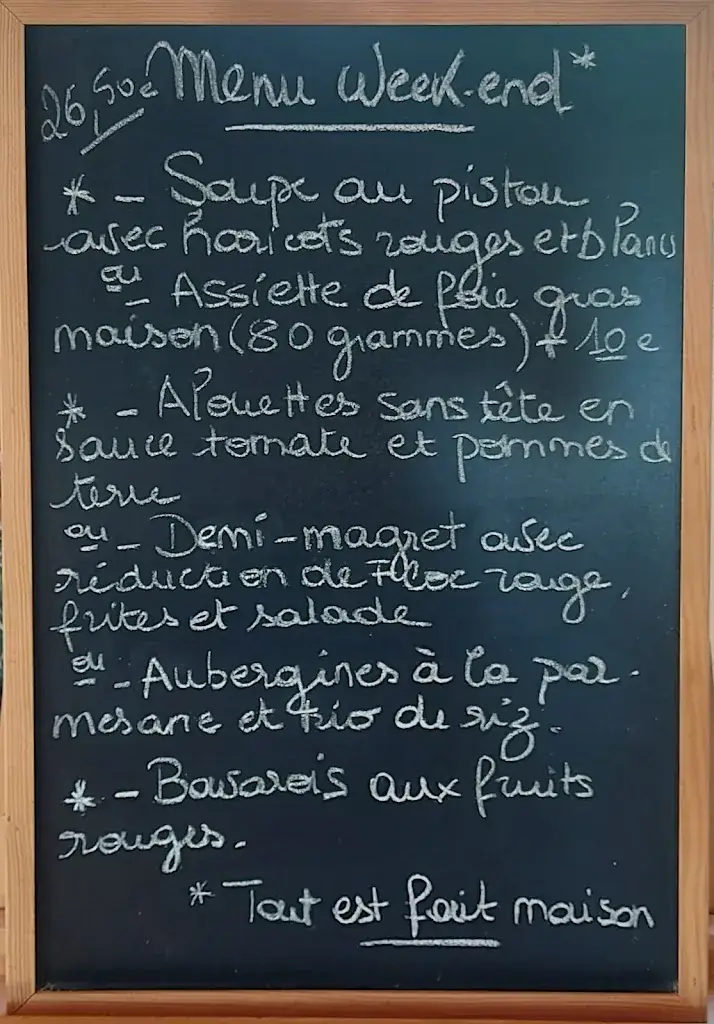 26,50e Menu Week-end*
* - Soupe au pistou
avec haricots rouges et blancs
ou - Assiette de foie gras
maison (80 grammes) + 10 e
* - Alouettes sans tête en
sauce tomate et pommes de
terre
ou - Demi-magret avec
réduction de Floc rouge,
frites et salade
ou - Aubergines à la par-
mesane et trio de riz.
* - Bavarois aux fruits
rouges.
* Tout est fait maison